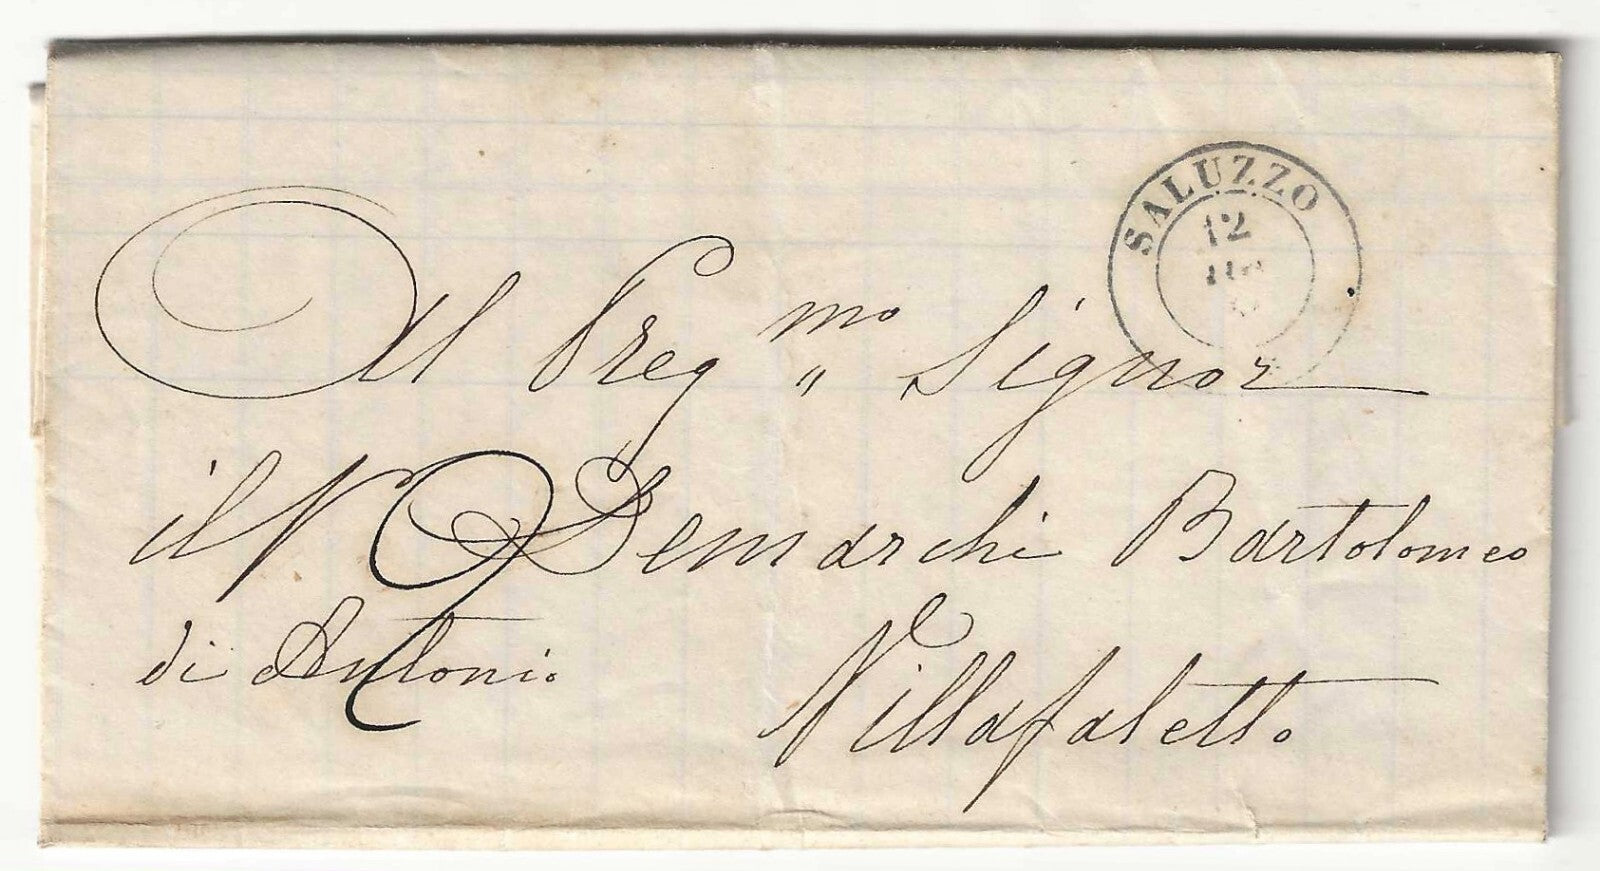 SALUZZO
12
Al Preg.mo Signor
il Demarchi Bartolomeo
di Antonio
Villafaletto